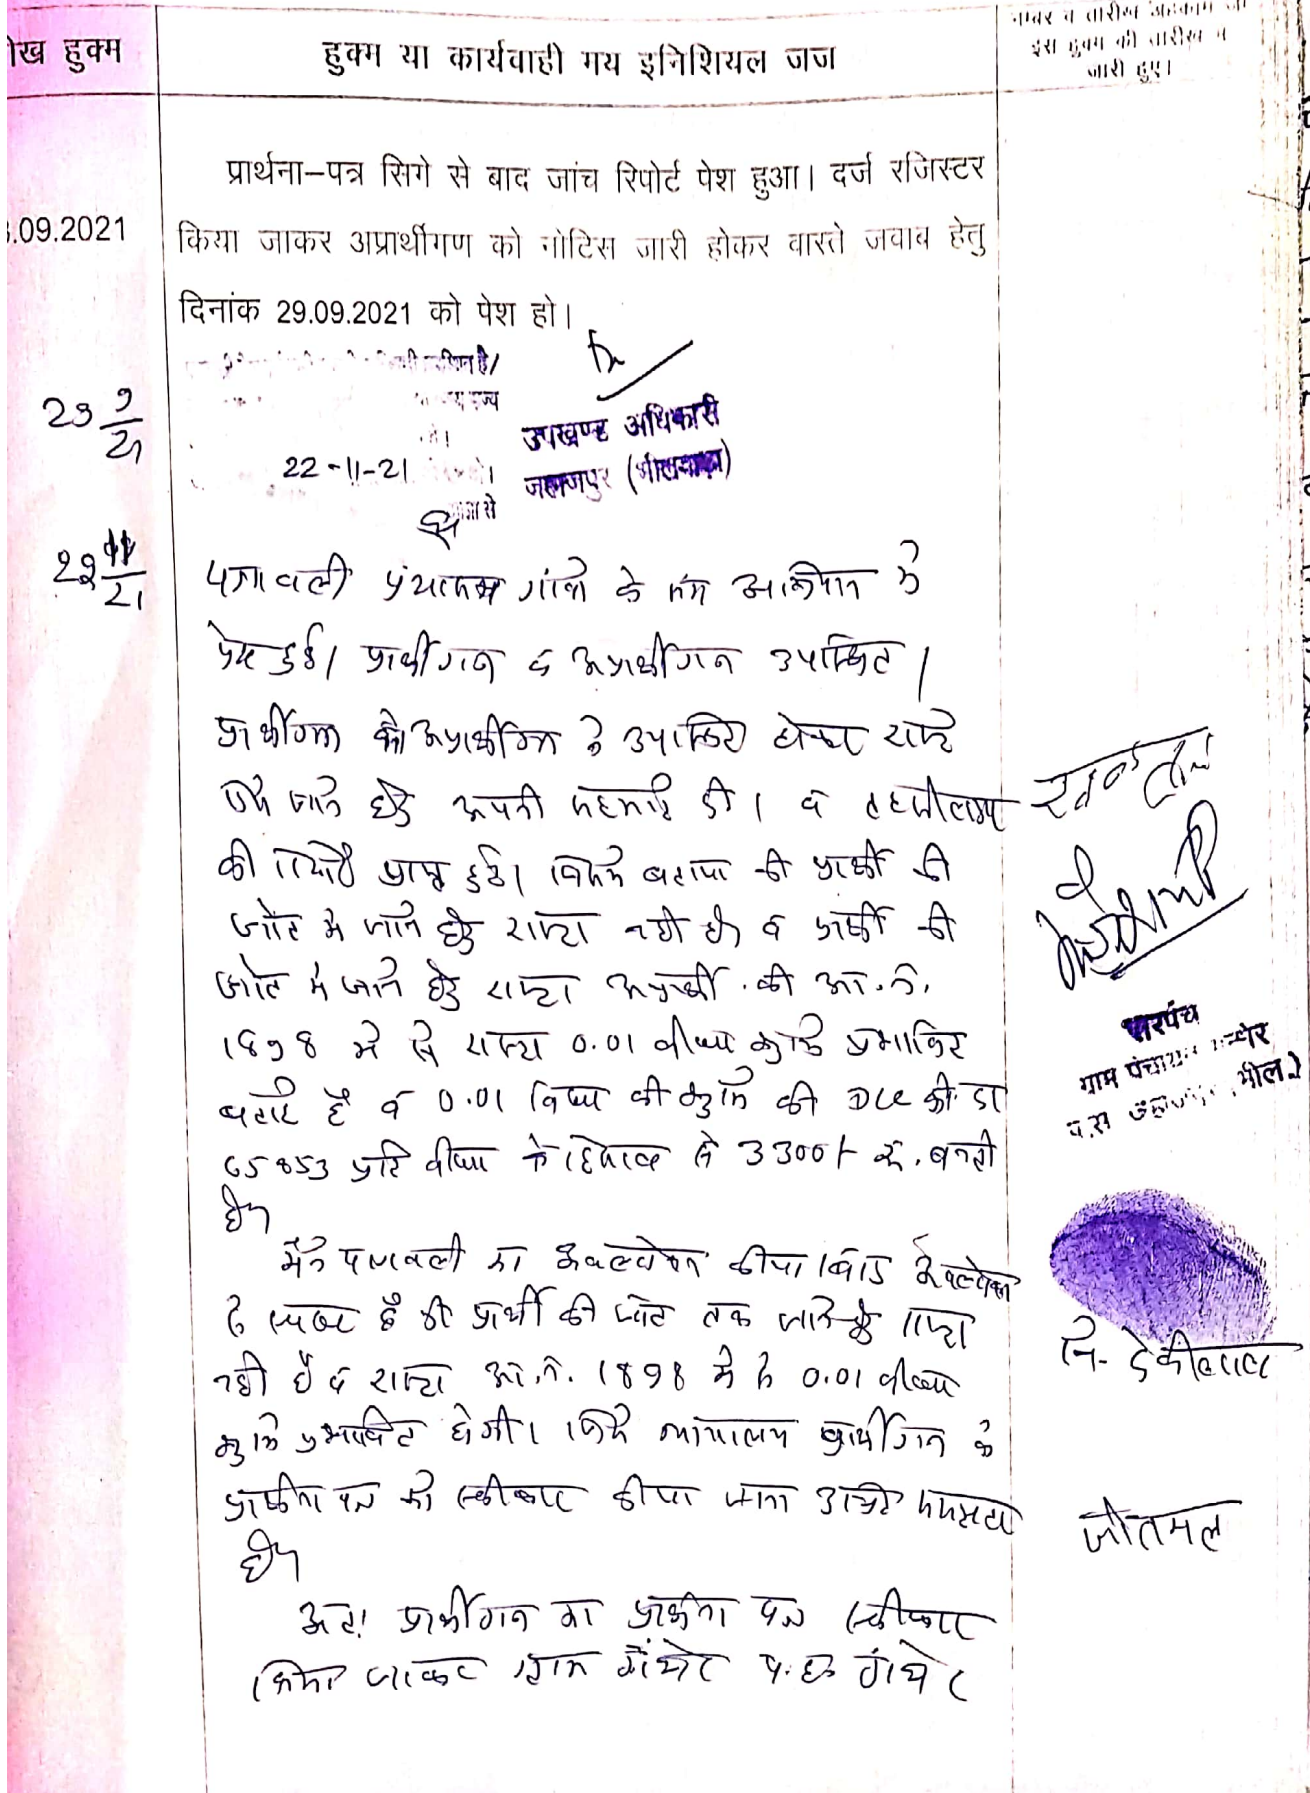 नम्बर व तारीख अहकाम जो
इस हुक्म की तारीख व
जारी हुए।
ीख हुक्म
हुक्म या कार्यवाही मय इनिशियल जज
प्रार्थना–पत्र सिगे से बाद जांच रिपोर्ट पेश हुआ। दर्ज रजिस्टर
.09.2021
किया जाकर अप्रार्थीगण को नोटिस जारी होकर वास्ते जवाब हेतु
दिनांक 29.09.2021 को पेश हो।
23 9/21
उपखण्ड अधिकारी
जहाजपुर (भीलवाड़ा)
22-11-21
22 11/21
पत्रावली गांवो के संग अभियान मे
पेश हुई। प्रार्थीगण व अप्रार्थीगण उपस्थित।
प्रार्थीगण को अप्रार्थीगण ने उपस्थित होकर रास्ते
जाने हेतु अपनी सहमति दी। व तहसीलदार
की रिपोर्ट प्राप्त हुई। जिसमे बताया की प्रार्थी की
जोत मे जाने हेतु रास्ता नही है व प्रार्थी की
जोत मे जाने हेतु रास्ता अप्रार्थी की आ.नं.
1898 मे से रास्ता 0.01 बीघा भुमि प्रभावित
बताई है व 0.01 बिघा की भुमि की DLC की दर
65853 प्रति बीघा के हिसाब से 3300/- रू. बनती
है।
मैने पत्रावली का अवलोकन कीया। बाद अवलोकन
से स्पष्ट है की प्रार्थी की जोत तक जाने हेतु रास्ता
नही है व रास्ता आ.नं. 1898 मे से 0.01 बीघा
भुमि प्रभावित होगी। जिसे न्यायालय प्रार्थीगण के
प्रार्थना पत्र को स्वीकार कीया जाना उचित समझता
है।
अतः प्रार्थीगण का प्रार्थना पत्र स्वीकार
किया जाकर ग्राम गंधेर प.ह. गंधेर
सरपंच
ग्राम पंचायत
नि- देवीलाल
जीतमल